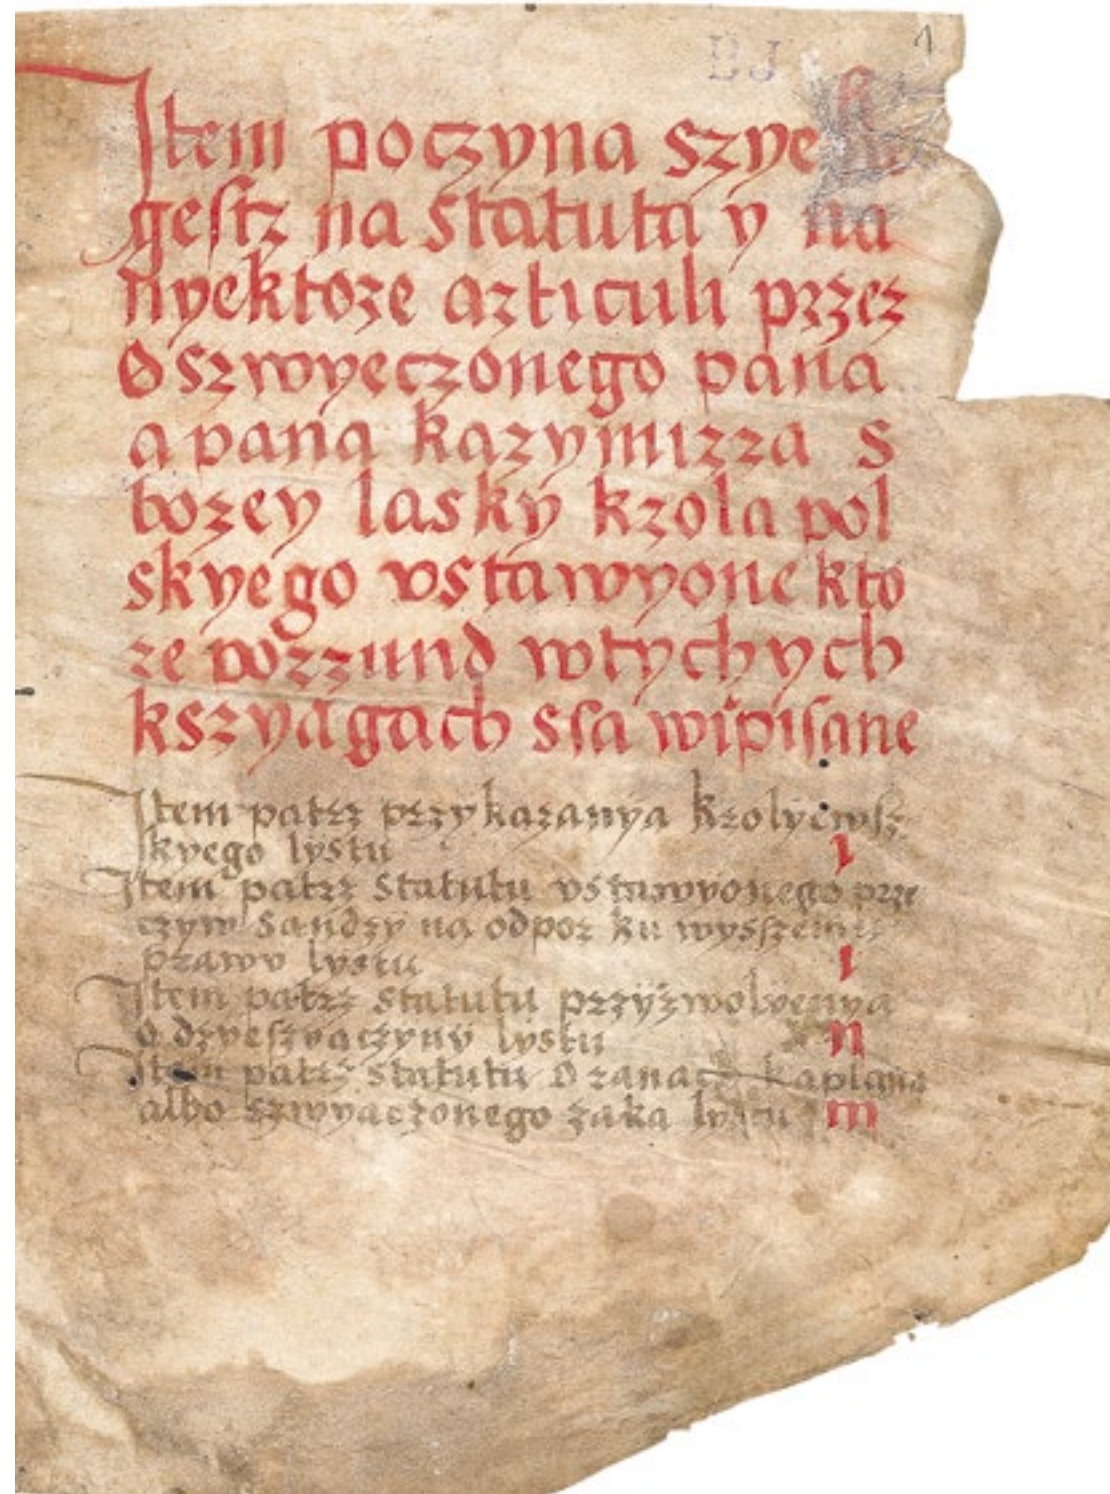 BJ 1
Item poczyna szye
gestz na statuta y na
nyektore articuli przez
Oszwyeczonego pana
a pana kazymirza s
bozey lasky krola pol
skyego vstawyone kto
re vorzund wtychych
kszyągach ssa wipisane
Item patrz przykazanya krolyewsz
skyego lystu 1
Item patrz statutu vstawyonego prze
czyw sandzy na odpor ku wysszemu
prawv lystu 1
Item patrz statutu przyzwolyenya
o dzyeszyaczyny lystu n
Item patrz statutu o ranach kaplana
albo szwyaczonego zaka lystu m